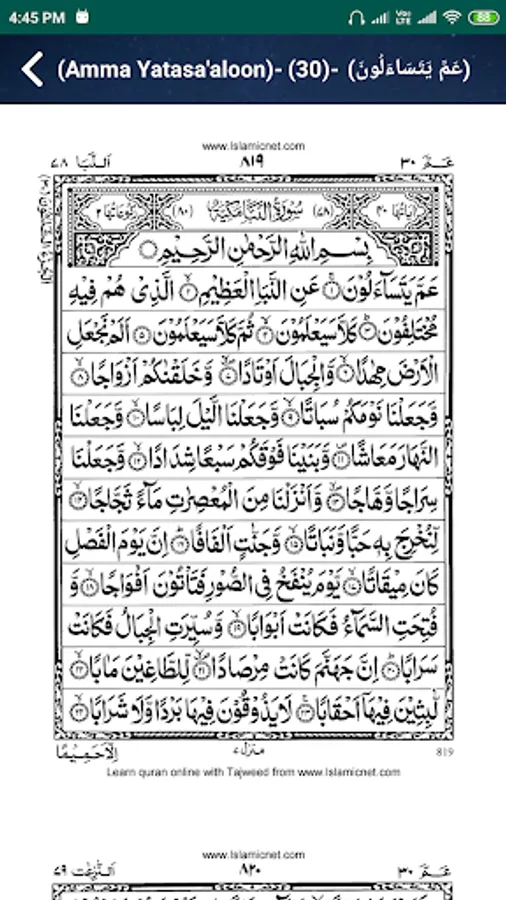 4:45 PM Vo) LTE 88
(Amma Yatasa'aloon)- (30)- (عَمَّ يَتَسَاءَلُونَ)
www.Islamicnet.com
عَـمَّ ٣٠ ٨١٩ اَلنَّبَا ٧٨
اٰیَاتُهَا ٤٠ (٧٨) سُوْرَةُ النَّبَاِ مَكِّيَّةٌ (٨٠) رُكُوْعَاتُهَا ٢
بِسْمِ اللّٰهِ الرَّحْمٰنِ الرَّحِيْمِ
عَمَّ يَتَسَآءَلُوْنَ ۝١ عَنِ النَّبَاِ الْعَظِيْمِ ۝٢ الَّذِىْ هُمْ فِيْهِ
مُخْتَلِفُوْنَ ۝٣ كَلَّا سَيَعْلَمُوْنَ ۝٤ ثُمَّ كَلَّا سَيَعْلَمُوْنَ ۝٥ اَلَمْ نَجْعَلِ
الْاَرْضَ مِهٰدًا ۝٦ وَّالْجِبَالَ اَوْتَادًا ۝٧ وَّخَلَقْنٰكُمْ اَزْوَاجًا ۝٨
وَّجَعَلْنَا نَوْمَكُمْ سُبَاتًا ۝٩ وَّجَعَلْنَا الَّيْلَ لِبَاسًا ۝١٠ وَّجَعَلْنَا
النَّهَارَ مَعَاشًا ۝١١ وَّبَنَيْنَا فَوْقَكُمْ سَبْعًا شِدَادًا ۝١٢ وَّجَعَلْنَا
سِرَاجًا وَّهَّاجًا ۝١٣ وَّاَنْزَلْنَا مِنَ الْمُعْصِرٰتِ مَآءً ثَجَّاجًا ۝١٤
لِّنُخْرِجَ بِهٖ حَبًّا وَّنَبَاتًا ۝١٥ وَّجَنّٰتٍ اَلْفَافًا ۝١٦ اِنَّ يَوْمَ الْفَصْلِ
كَانَ مِيْقَاتًا ۝١٧ يَّوْمَ يُنْفَخُ فِى الصُّوْرِ فَتَاْتُوْنَ اَفْوَاجًا ۝١٨ وَّ
فُتِحَتِ السَّمَآءُ فَكَانَتْ اَبْوَابًا ۝١٩ وَّسُيِّرَتِ الْجِبَالُ فَكَانَتْ
سَرَابًا ۝٢٠ اِنَّ جَهَنَّمَ كَانَتْ مِرْصَادًا ۝٢١ لِّلطَّاغِيْنَ مَاٰبًا ۝٢٢
لّٰبِثِيْنَ فِيْهَآ اَحْقَابًا ۝٢٣ لَا يَذُوْقُوْنَ فِيْهَا بَرْدًا وَّلَا شَرَابًا ۝٢٤
819 منزل ٧ اِلَّا حَمِيْمًا
Learn quran online with Tajweed from www.Islamicnet.com
www.Islamicnet.com
عَـمَّ ٣٠ ٨٢٠ اَلنّٰزِعٰت ٧٩